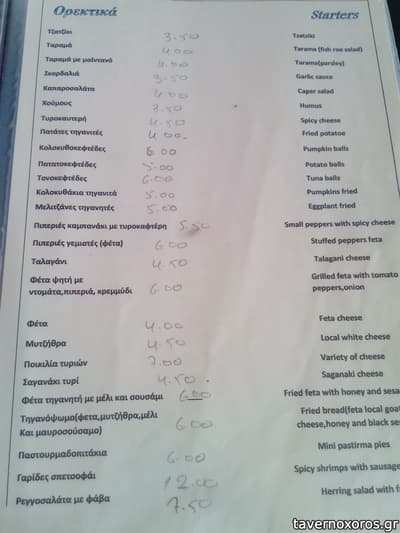 Ορεκτικά Starters
Τζατζίκι 3.50 Tzatziki
Ταραμά 4.00 Tarama (fish roe salad)
Ταραμά με μαϊντανό 4.00 Tarama(parsley)
Σκορδαλιά 3.50 Garlic sauce
Καπαροσαλάτα 4.00 Caper salad
Χούμους 3.50 Humus
Τυροκαυτερή 4.50 Spicy cheese
Πατάτες τηγανιτές 4.00 Fried potatoe
Κολοκυθοκεφτέδες 6.00 Pumpkin balls
Πατατοκεφτέδες 5.00 Potato balls
Τονοκεφτέδες 6.00 Tuna balls
Κολοκυθάκια τηγανιτά 5.00 Pumpkins fried
Μελιτζάνες τηγανητές 5.00 Eggplant fried
Πιπεριές καμπανάκι με τυροκαφτέρη 5.50 Small peppers with spicy cheese
Πιπεριές γεμιστές (φέτα) 6.00 Stuffed peppers feta
Ταλαγάνι 4.50 Talagani cheese
Φέτα ψητή με Grilled feta with tomato
ντομάτα,πιπεριά, κρεμμύδι 6.00 peppers,onion
Φέτα 4.00 Feta cheese
Μυτζήθρα 4.50 Local white cheese
Ποικιλία τυριών 7.00 Variety of cheese
Σαγανάκι τυρί 4.50 Saganaki cheese
Φέτα τηγανητή με μέλι και σουσάμι 6.00 Fried feta with honey and sesa
Τηγανόψωμο(φετα,μυτζήθρα,μέλι Fried bread(feta local goat
Και μαυροσούσαμο) 6.00 cheese,honey and black se
Παστουρμαδοπιτάκια 6.00 Mini pastirma pies
Γαρίδες σπετσοφάι 12.00 Spicy shrimps with sausage
Ρεγγοσαλάτα με φάβα 7.50 Herring salad with f
www.tavernoxoros.gr